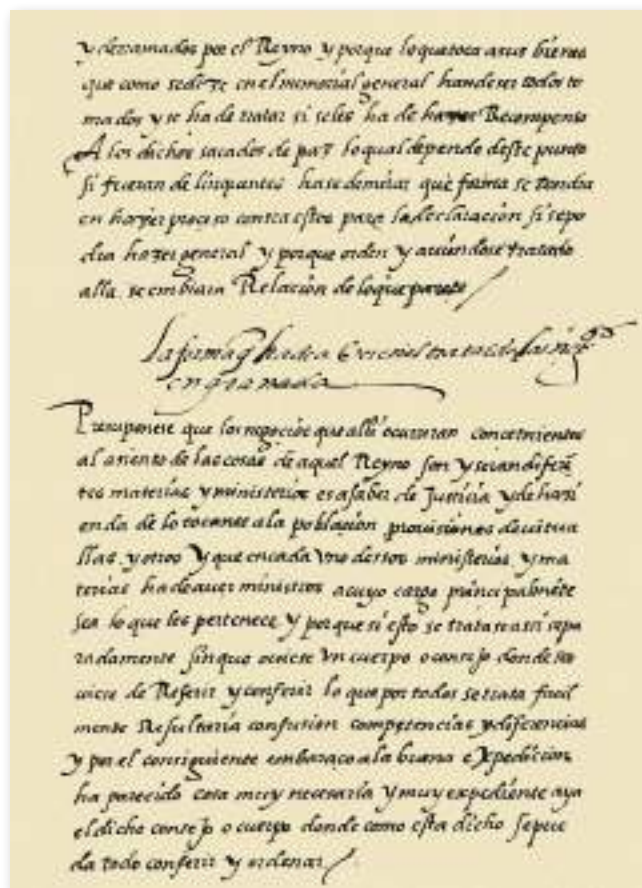 y derramados por el Reyno y porque loquetoca asus bienes
que como sedize en el memorial general handeser todos to
mados y se ha de tratar si seles ha de hazer Recompensa
A los dichos sacados de paz lo qual depende deste punto
si fueran delinquentes hase demirar que forma se tendra
en hazer proceso contra estos para la declaracion si sepo
dra hazer general y porque orden y auiendose tratado
alla se embiara Relacion de loque parece
La forma q ha de auer en el tratar de los neg.os
en granada
Presuponese que los negocios que alli ocurriran concernientes
al asiento de las cosas de aquel Reyno son y seran difere
tes materias y ministerios es a saber de Justicia y de hazi
enda de lo tocante a la poblacion prouisiones de uitua
llas y otros y que encada vno destos ministerios y ma
terias ha de auer ministros a cuyo cargo principalmete
sea lo que les pertenece y porque si esto se tratase assi sepa
radamente sin que ouiese vn cuerpo o consejo donde se
uiese de Referir y conferir lo que por todos se trata facil
mente Resultaria confusion competencias y diferencias
y por el consiguiente embaraço a la buena expedicion
ha parecido cosa muy necesaria y muy expediente aya
el dicho consejo o cuerpo donde como esta dicho sepue
da todo conferir y ordenar